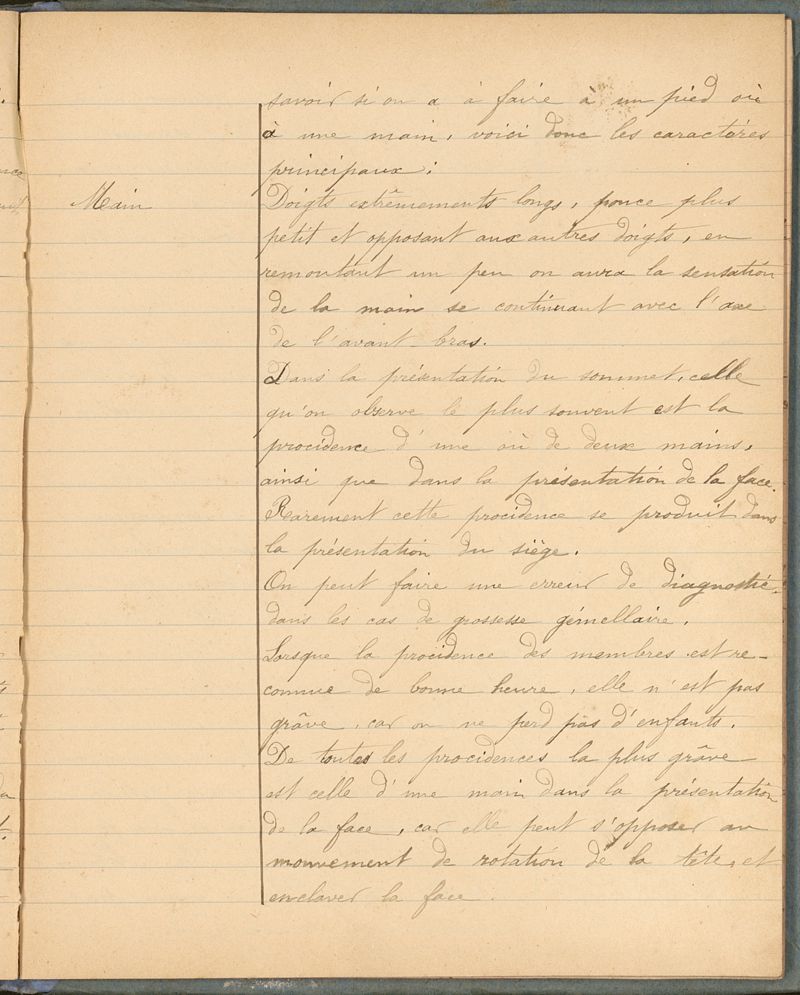 savoir si on a à faire à un pied où
à une main, voici donc les caractères
principaux :
Main
Doigts extrêmements longs, pouce plus
petit et opposant aux autres doigts, en
remontant un peu on aura la sensation
de la main se continuant avec l'axe
de l'avant-bras.
Dans la présentation du sommet, celle
qu'on observe le plus souvent est la
procidence d'une où de deux mains,
ainsi que dans la présentation de la face.
Rarement cette procidence se produit dans
la présentation du siège.
On peut faire une erreur de diagnostic,
dans les cas de grossesse gémellaire.
Lorsque la procidence des membres est re-
connue de bonne heure, elle n'est pas
grâve, car on ne perd pas d'enfants.
De toutes les procidences la plus grâve
est celle d'une main dans la présentation
de la face, car elle peut s'opposer au
mouvement de rotation de la tête, et
enclaver la face.